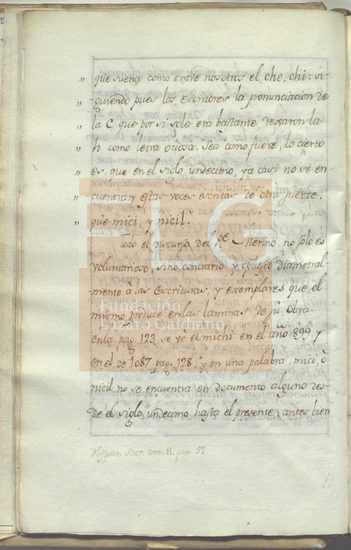 " que suena como entre nosotros el che, chi: si-
" guiendo pues los escritores la pronunciacion de
" la C que por si sola era bastante dexaron la
" h como letra ociosa. Sea como fuere, lo cierto
" es, que en el siglo undecimo, ya casi no se en-
" cuentran estas voces escritas de otra suerte,
" que mici, y nicil."
Todo el discurso del Pe. Merino no solo es
voluntarioso, sino contrario y opuesto diametral-
mente a las Escrituras, y exemplares que el
mismo produce en las laminas de su obra.
En la pag. 123 se ve el michi en el año 899 y
en el de 1087 pag. 128, y en una palabra, mici, ó
nicil no se encuentra en documento alguno des-
de el siglo undecimo hasta el presente, antes bien
pag. 52.
FLG
Fundación
Lázaro Galdiano